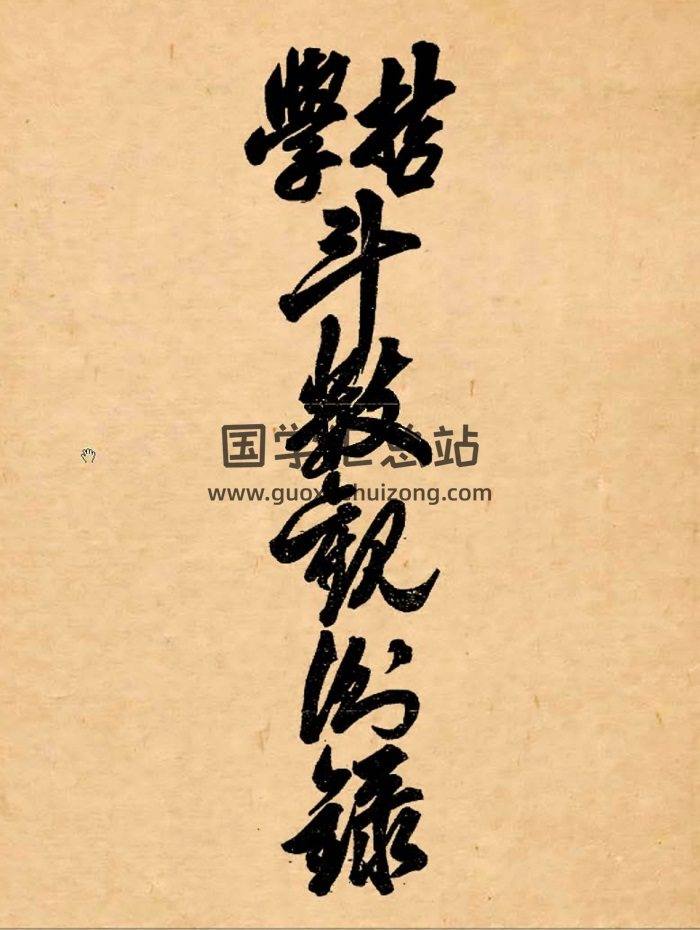 哲學
斗數觀測錄
国学汇总站
www.guoxuehuizong.com